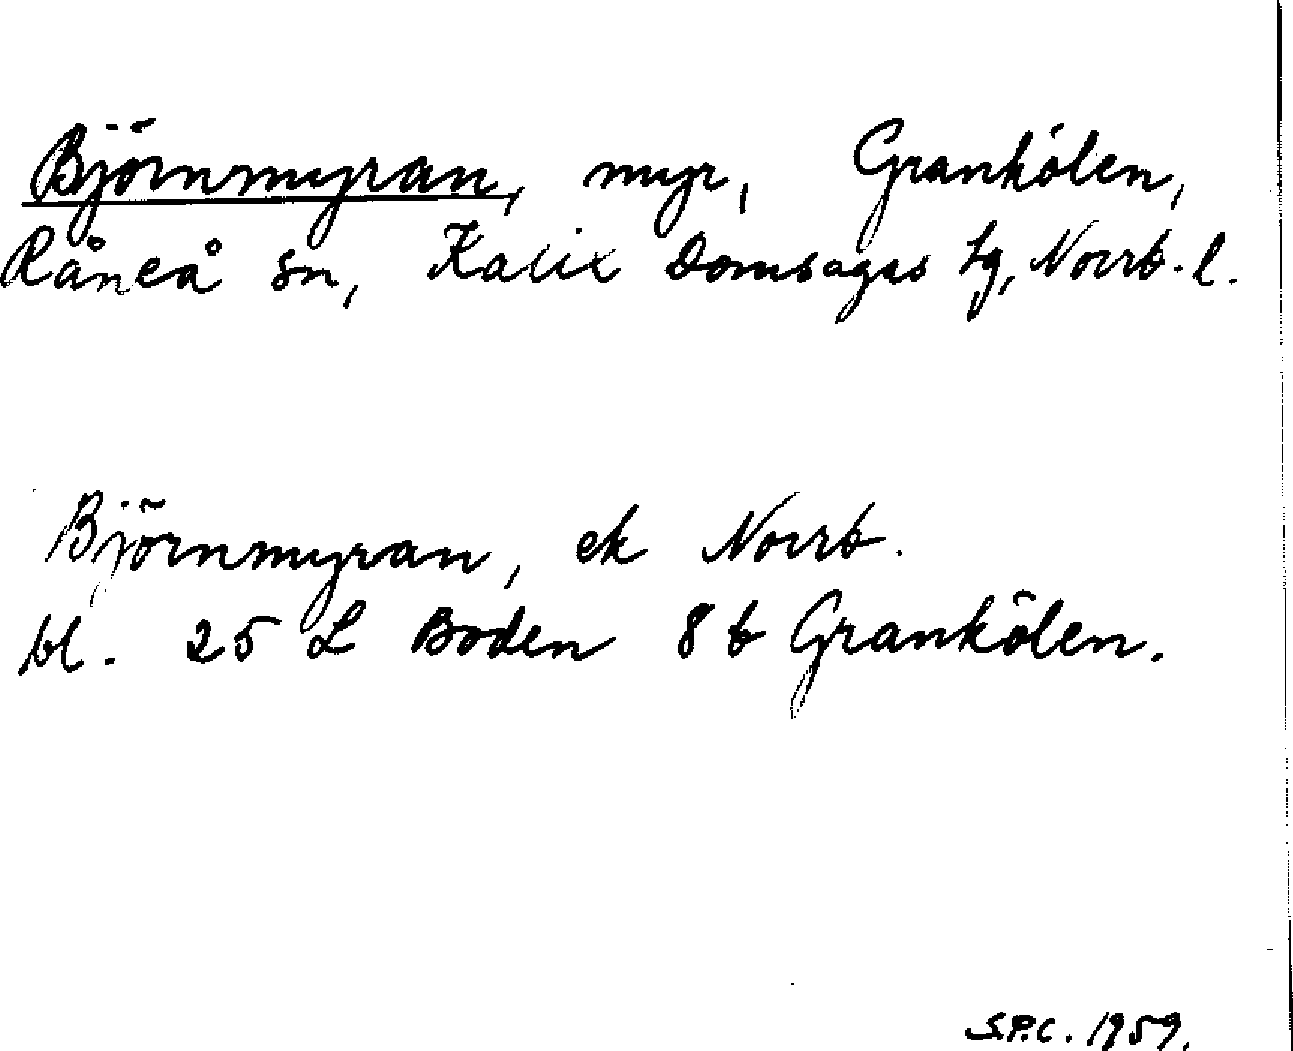 Björnmyran, myr, Grankölen,
Råneå sn, Kalix Domsagas tg, Norrb. l.
Björnmyran, ek Norrb.
bl. 25 L Boden 8 b Grankölen.
S.P.C. 1959.